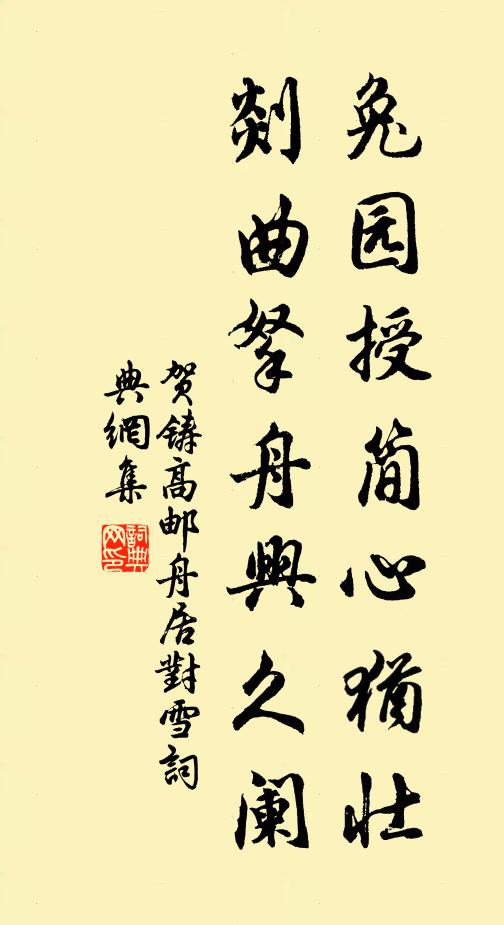 兔园授简心犹壮
剡曲拏舟興久阑
贺铸高邮舟居對雪詞
典網集
詞典网印